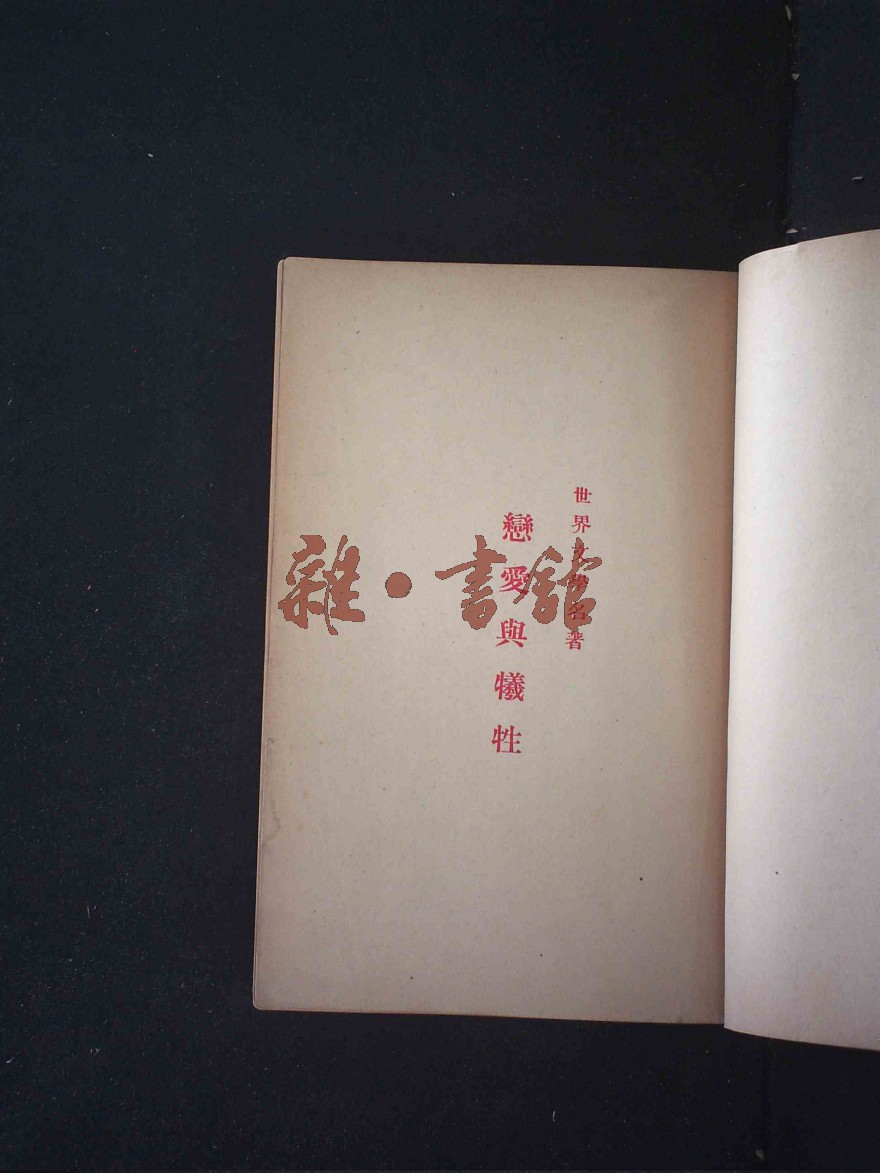 世界文學名著
戀愛與犧牲
雜·書館